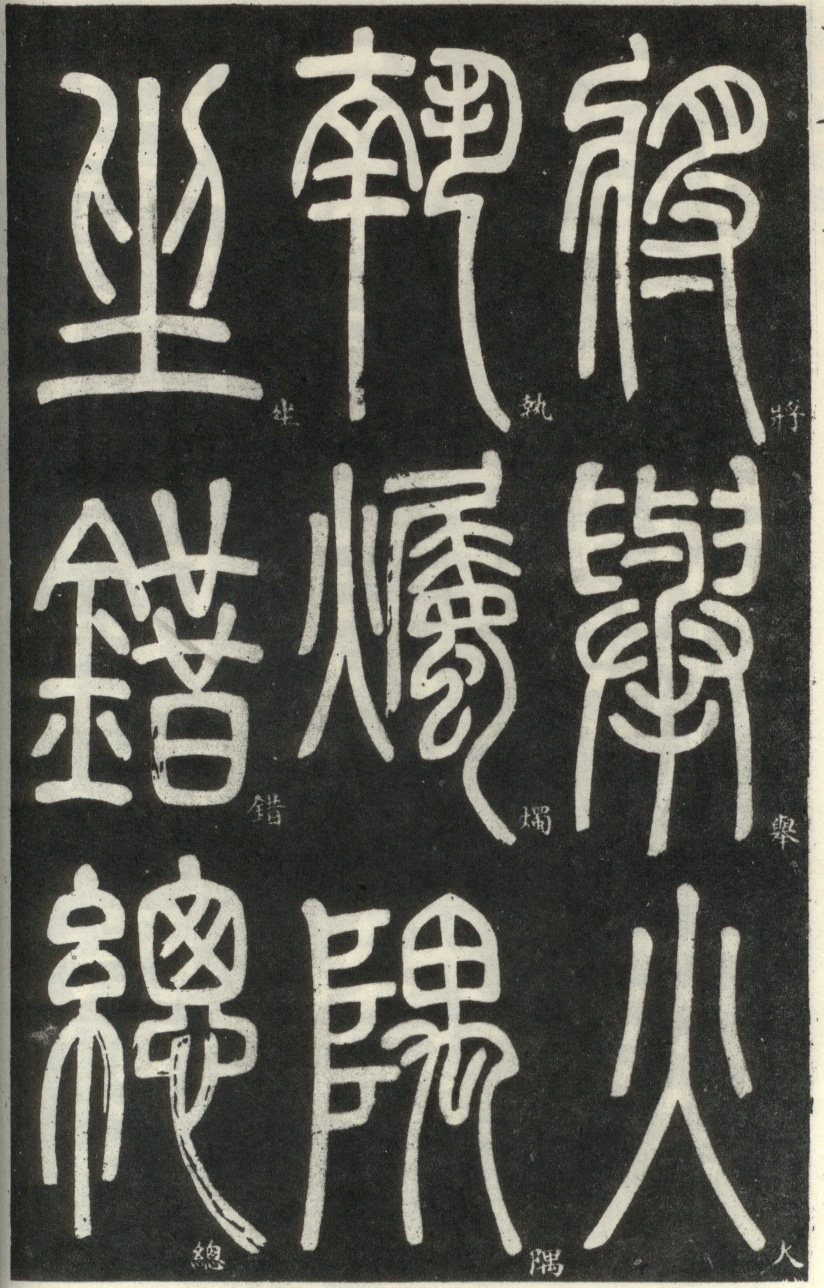 將舉火
執燭隅
坐錯總